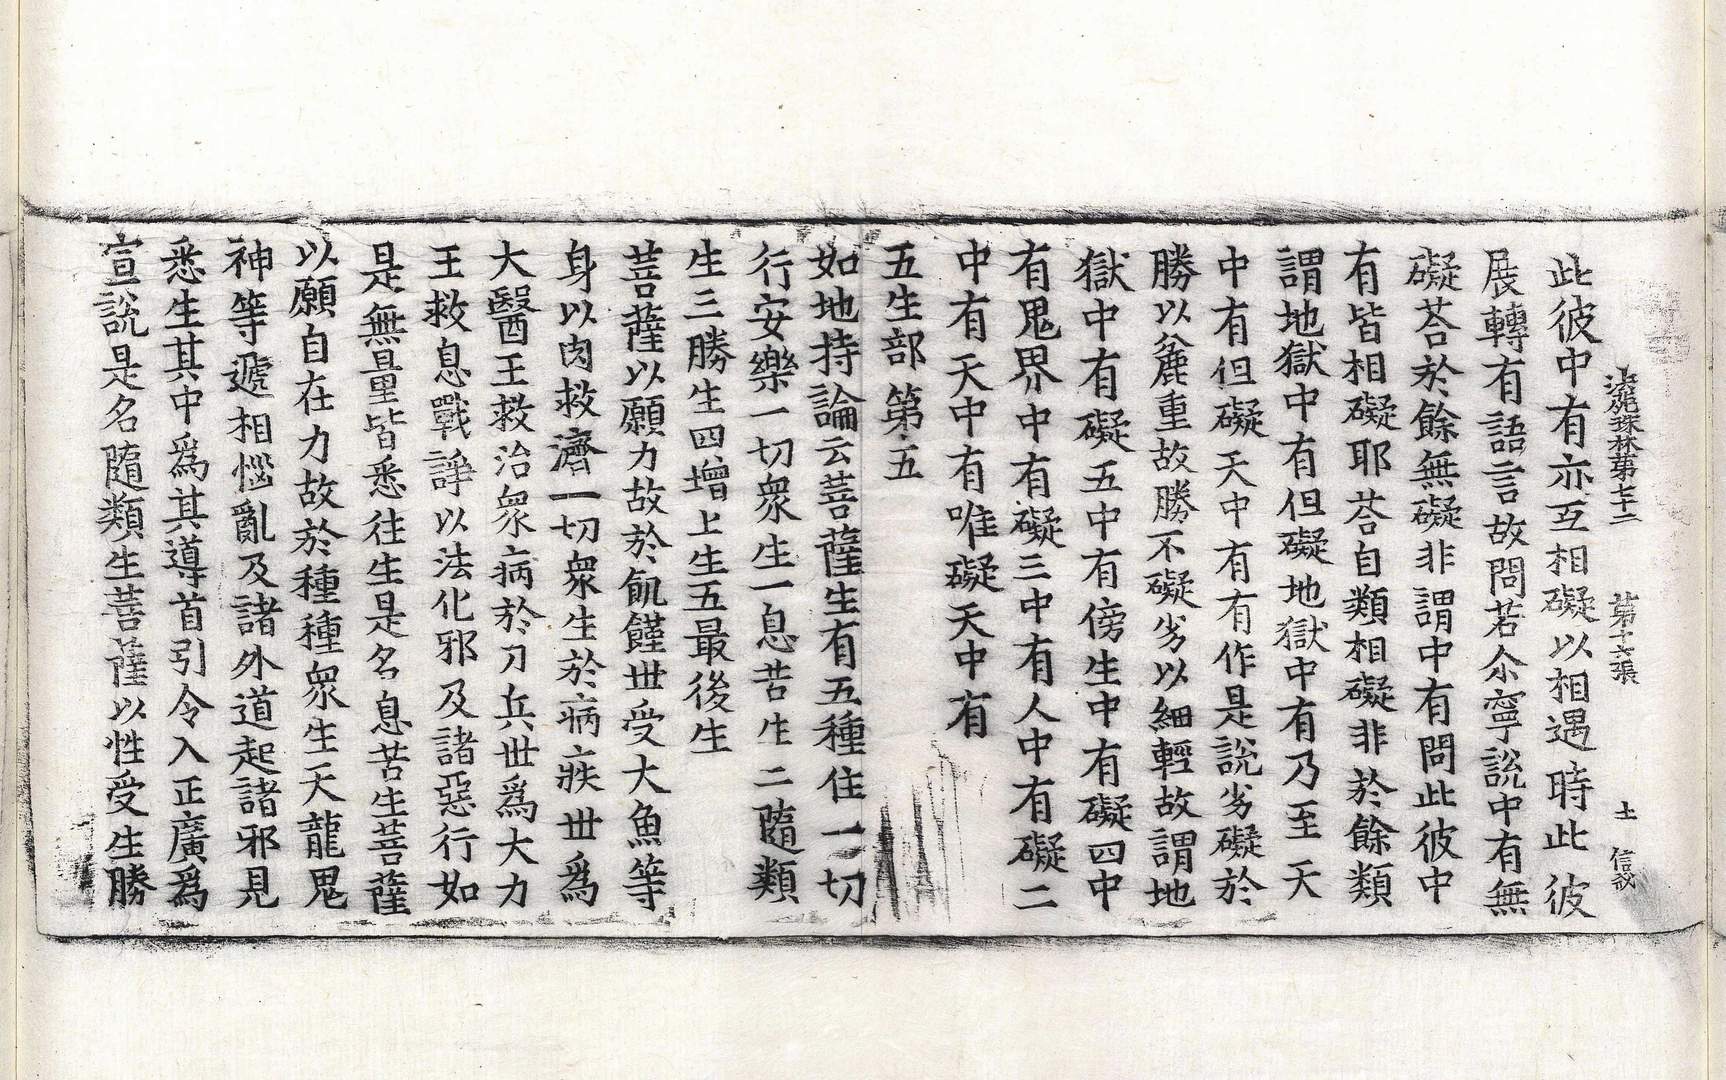 法苑珠林第七十二 第十六張 土 信誡
此彼中有亦互相礙以相遇時此彼
展轉有語言故問若尒寧説中有無
礙荅於餘無礙非謂中有問此彼中
有皆相礙耶荅自類相礙非於餘類
謂地獄中有但礙地獄中有乃至天
中有但礙天中有有作是説劣礙於
勝以麁重故勝不礙劣以細輕故謂地
獄中有礙五中有傍生中有礙四中
有鬼界中有礙三中有人中有礙二
中有天中有唯礙天中有
五生部第五
如地持論云菩薩生有五種住一切
行安樂一切衆生一息苦生二隨類
生三勝生四增上生五最後生
菩薩以願力故於飢饉丗受大魚等
身以肉救濟一切衆生於病疾丗爲
大醫王救治衆病於刀兵丗爲大力
王救息戰諍以法化邪及諸惡行如
是無量皆悉往生是名息苦生菩薩
以願自在力故於種種衆生天龍鬼
神等遞相惱亂及諸外道起諸邪見
悉生其中爲其導首引令入正廣爲
宣説是名隨類生菩薩以性受生勝